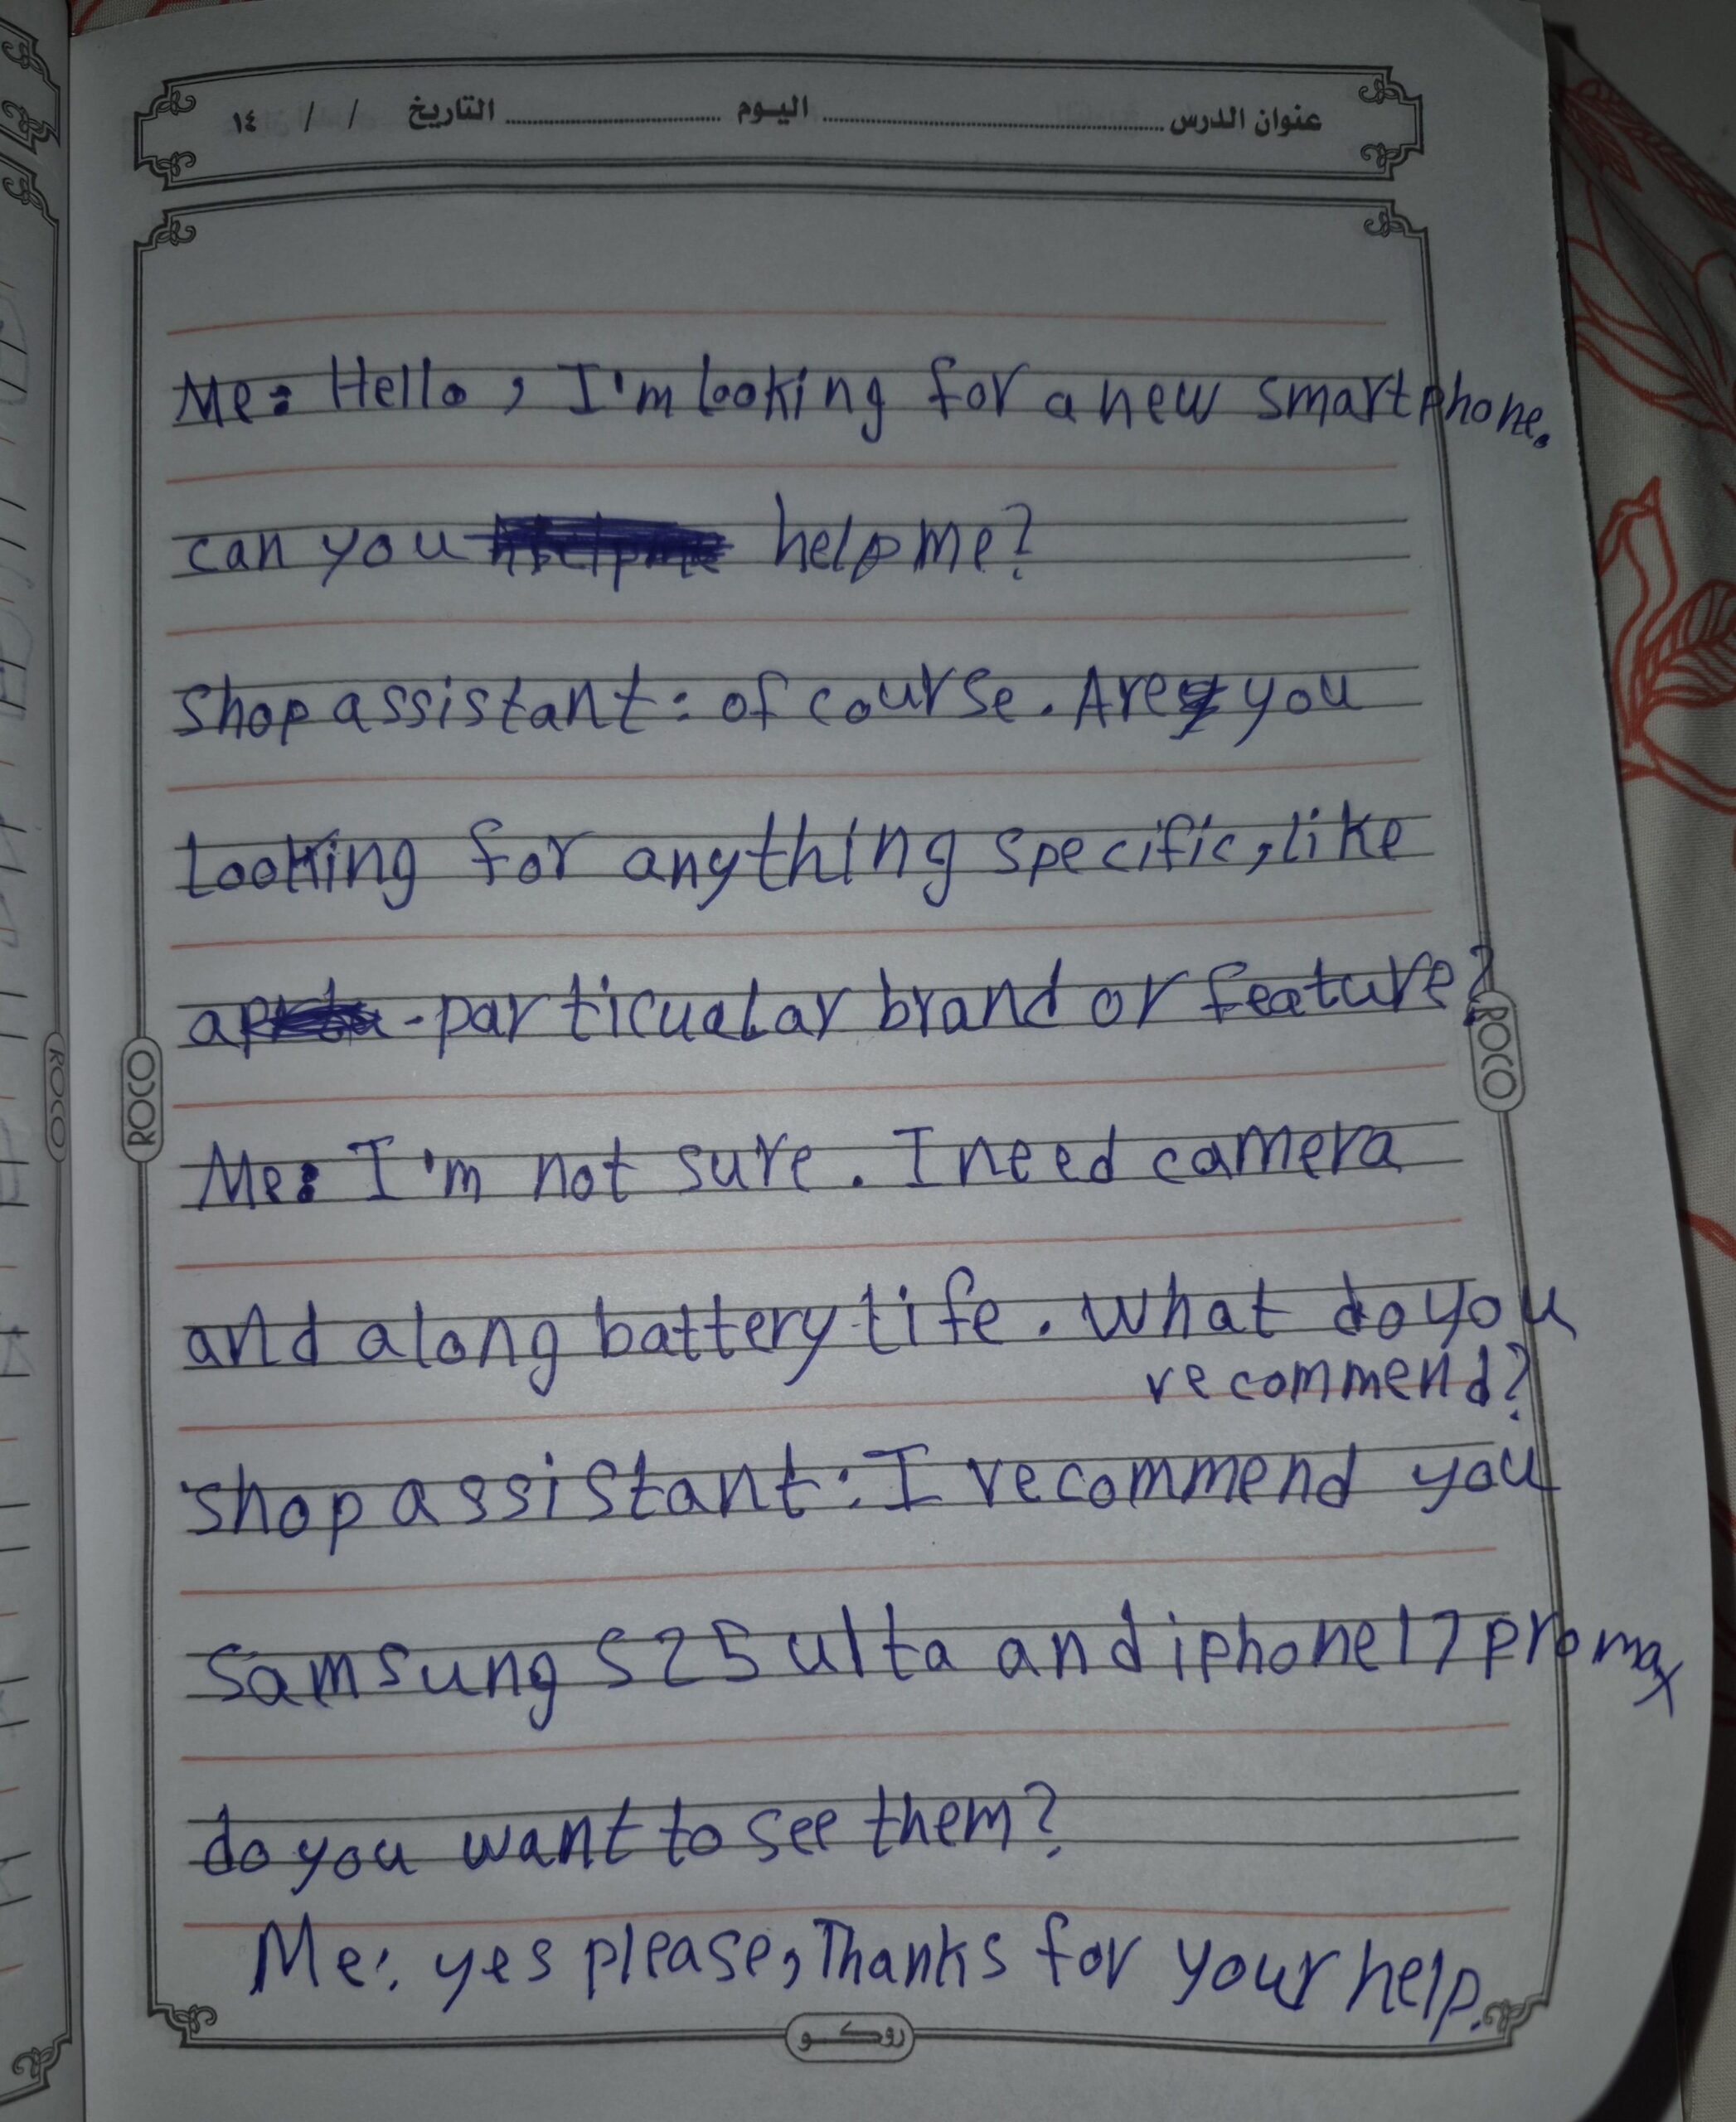 عنوان الدرس ........ اليوم ........ التاريخ / / ١٤
Me: Hello, I'm looking for a new smartphone.
can you help me?
shop assistant: of course. Are you
Looking for anything specific, like
a particualar brand or feature?
Me: I'm not sure. I need camera
and a long battery life. What do you
recommend?
shop assistant: I recommend you
Samsung S25 ulta and iphone 17 pro max
do you want to see them?
Me: yes please, Thanks for your help.
ROCO
ROCO
ROCO
روكو